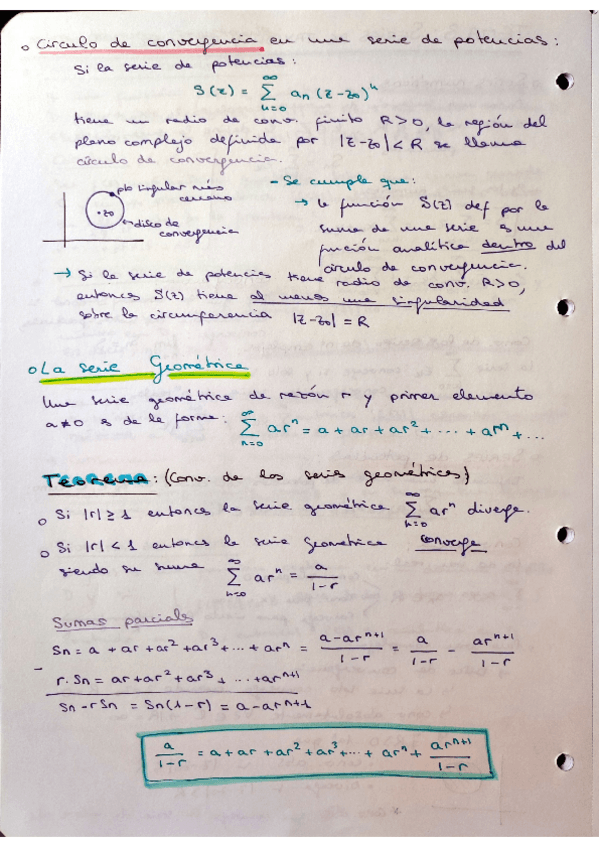 o Círculo de convergencia en una serie de potencias:
Si la serie de potencias:
S(z) = ∑_{n=0}^{∞} a_n (z-z_0)^n
tiene un radio de conv. finito R>0, la región del
plano complejo definida por |z-z_0|<R se llama
círculo de convergencia.
pto singular más
cercano
z_0
disco de
convergencia
- Se cumple que:
→ la función S(z) def por la
suma de una serie es una
función analítica dentro del
círculo de convergencia.
→ Si la serie de potencias tiene radio de conv. R>0,
entonces S(z) tiene al menos una singularidad
sobre la circunferencia |z-z_0| = R
o La serie Geométrica
Una serie geométrica de razón r y primer elemento
a≠0 es de la forma: ∑_{n=0}^{∞} ar^n = a + ar + ar^2 + ... + ar^n + ...
Teorema: (Conv. de las series geométricas)
o Si |r| ≥ 1 entonces la serie geométrica ∑_{n=0}^{∞} ar^n diverge.
o Si |r| < 1 entonces la serie Geométrica converge
siendo su suma ∑_{n=0}^{∞} ar^n = a/(1-r)
Sumas parciales
Sn = a + ar + ar^2 + ar^3 + ... + ar^n = (a-ar^{n+1})/(1-r) = a/(1-r) - ar^{n+1}/(1-r)
- r.Sn = ar + ar^2 + ar^3 + ... + ar^{n+1}
Sn - rSn = Sn(1-r) = a - ar^{n+1}
a/(1-r) = a + ar + ar^2 + ar^3 + ... + ar^n + ar^{n+1}/(1-r)